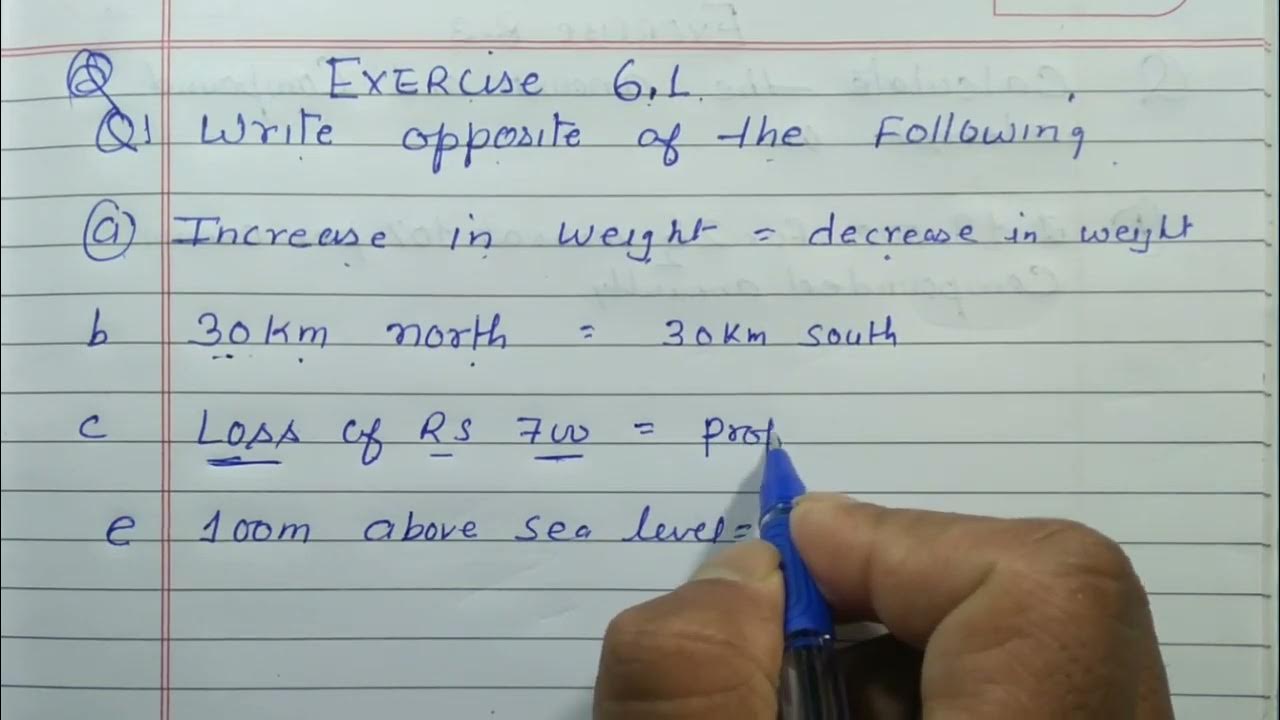 Exercise 6.1
Q1 Write opposite of the Following
a Increase in weight = decrease in weight
b 30 km north = 30 km south
c Loss of Rs 700 = prof
e 100m above sea level =